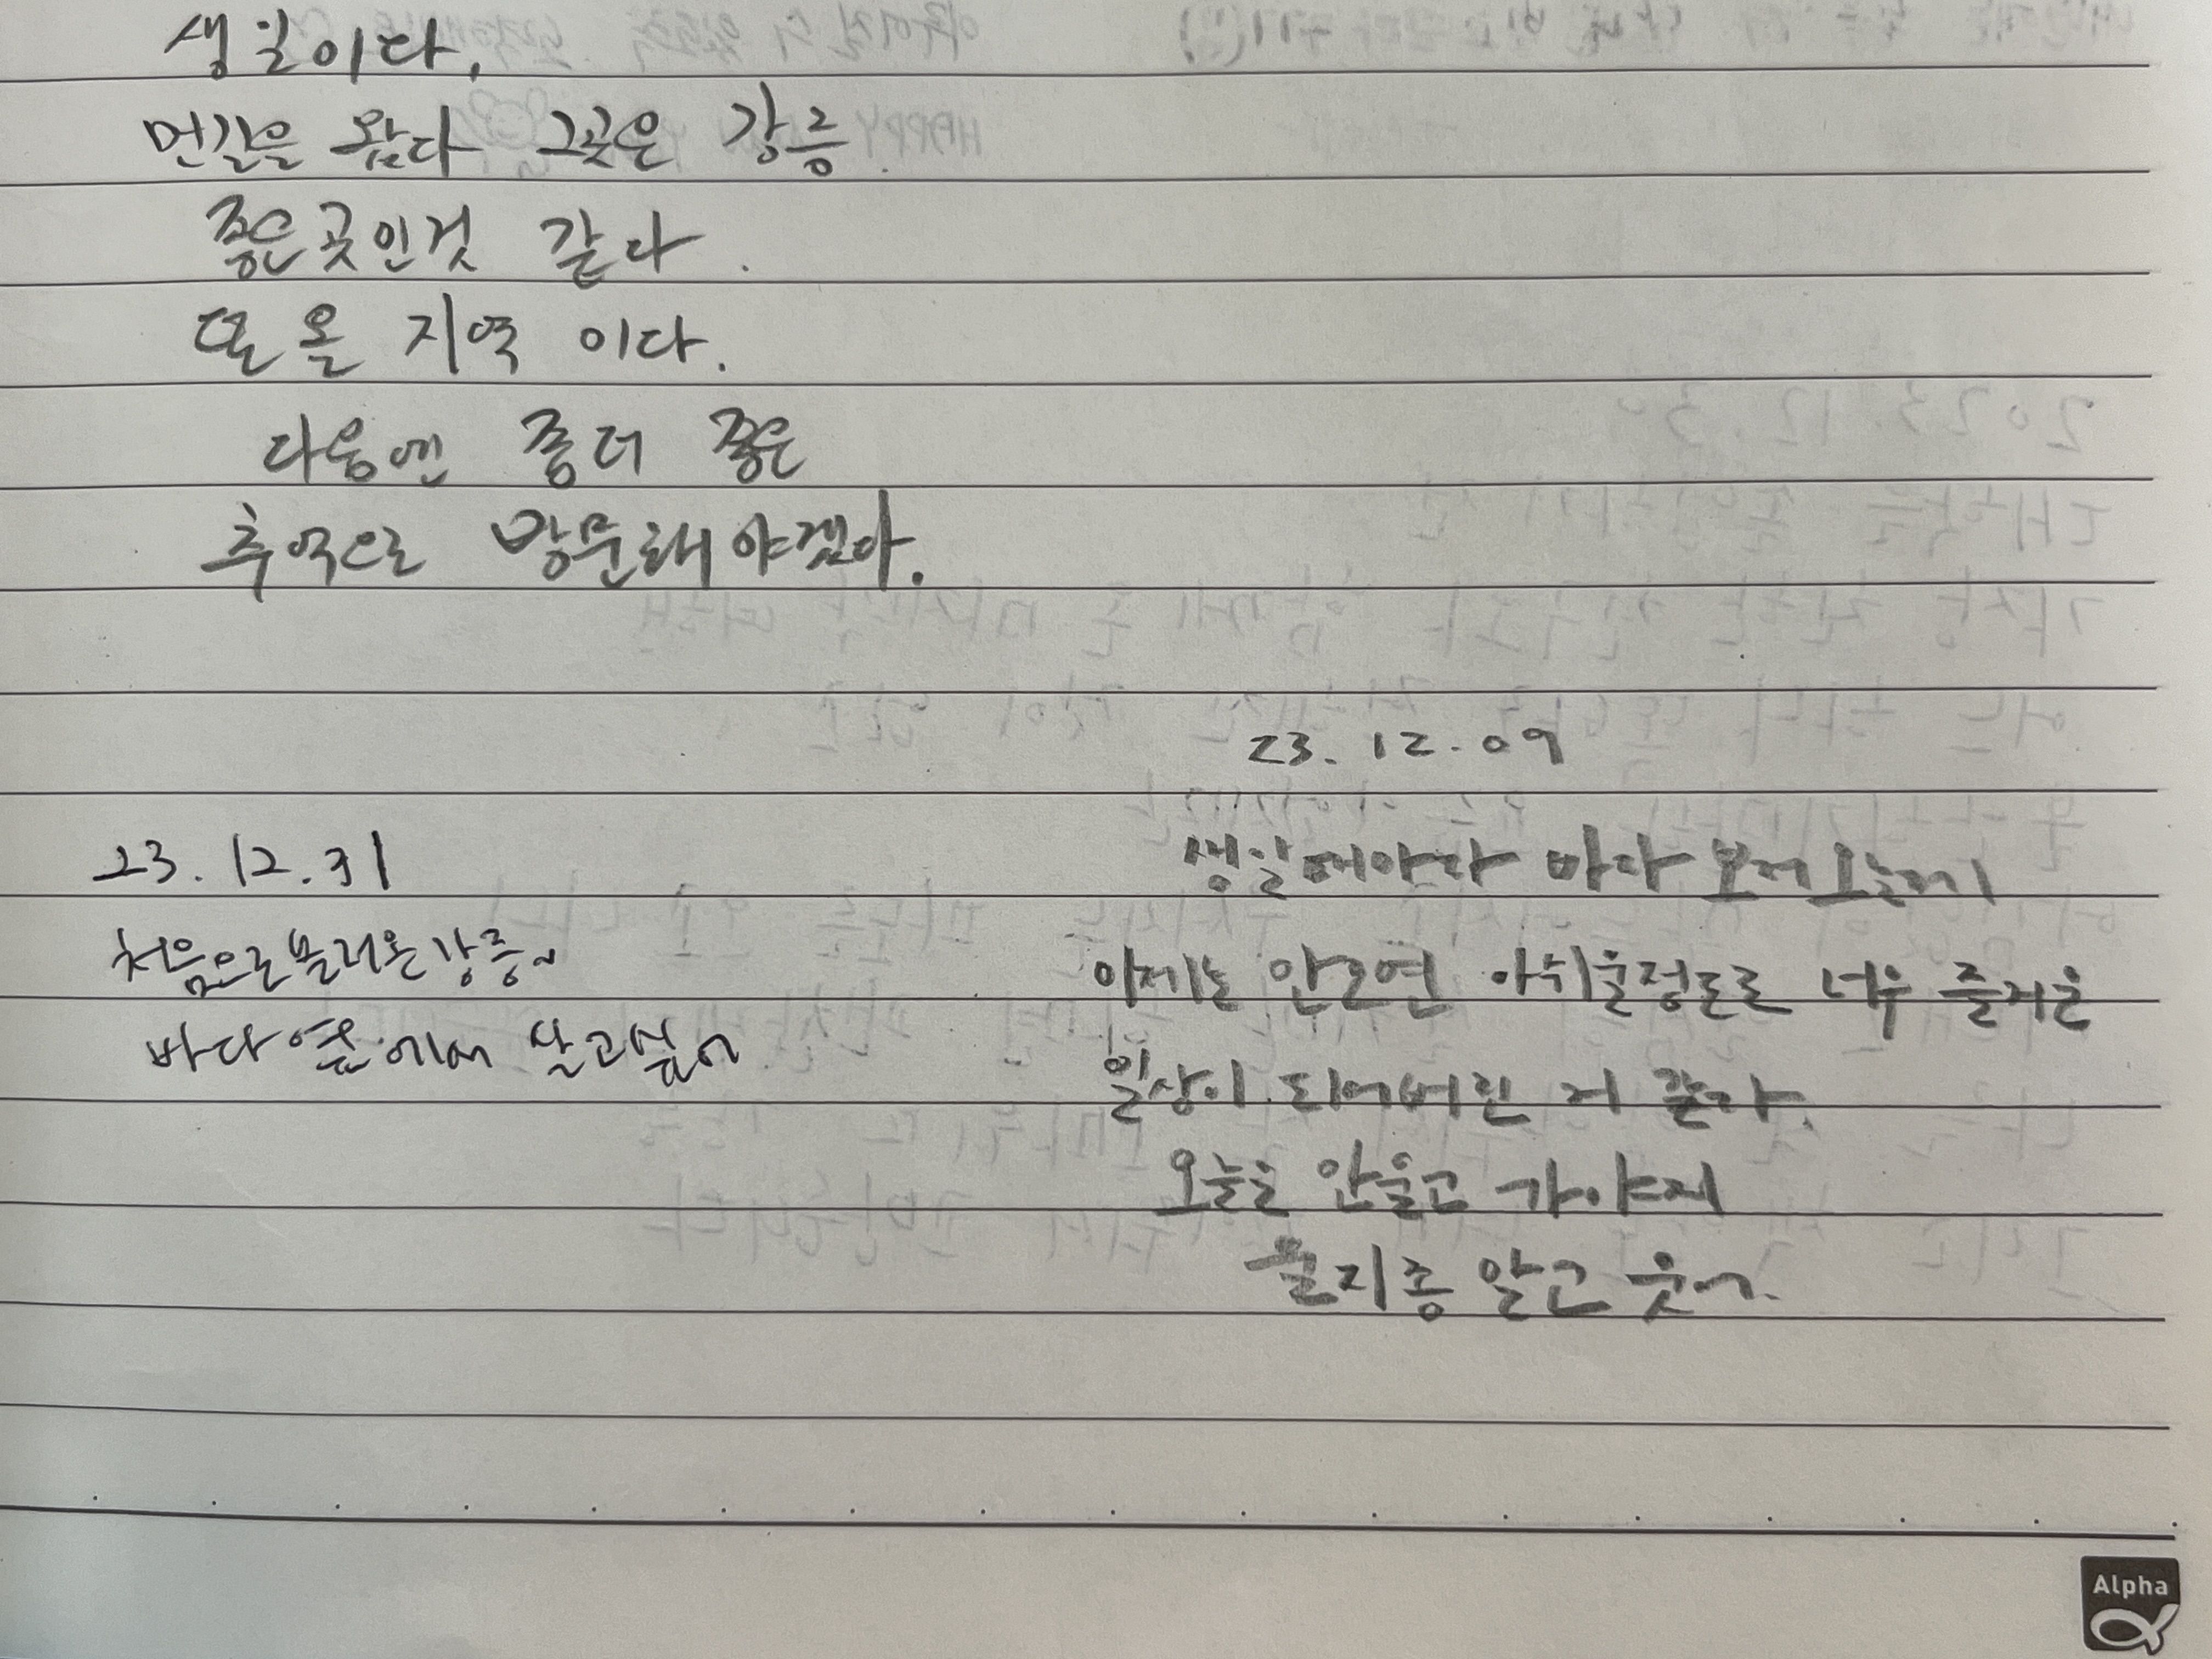 생일이다.
먼길을 왔다 그곳은 강릉.
좋은곳인것 같다.
또 올 지역 이다.
다음엔 좀더 좋은
추억으로 방문해야겠다.
23.12.31
처음으로 놀러온 강릉~
바다 옆에서 살고싶어
23.12.09
생일때마다 바다 보러 오는게
이제는 안오면 아쉬울정도로 너무 즐거운
일상이 되어버린 거 같다.
오늘은 안울고 가야지
울지종 알고 웃어.
Alpha